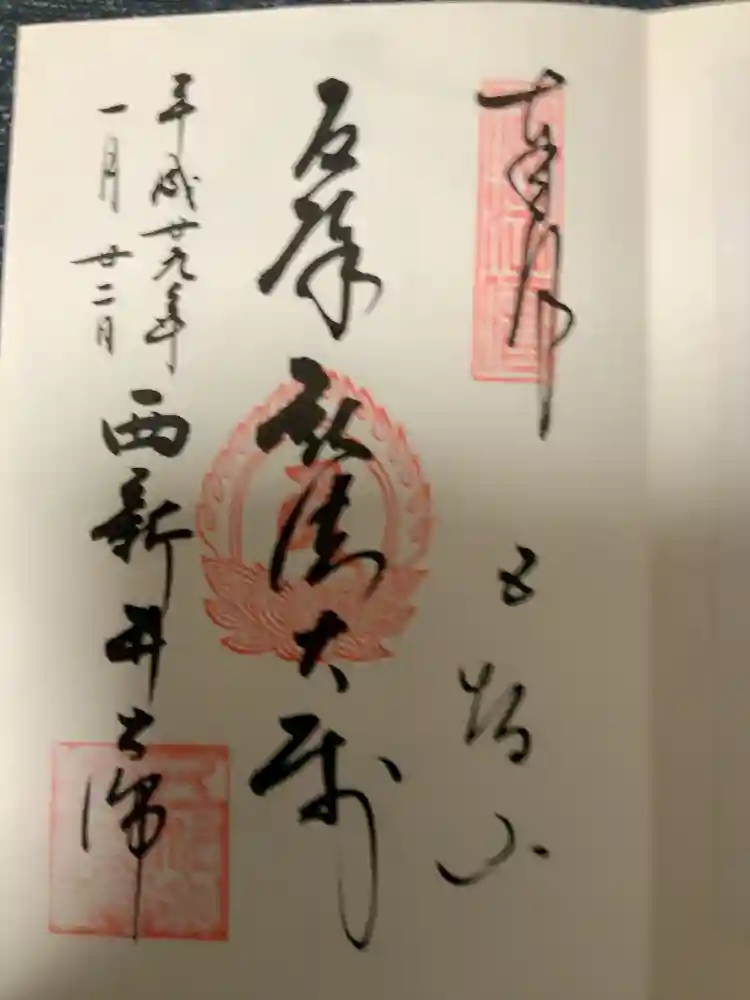 奉拝
五智山
厄除 弘法大師
平成廿九年
一月廿二日
西新井大師